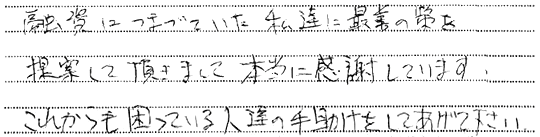 融資につまづいていた私達に最善の策を
提案して頂きまして本当に感謝しています。
これからも困っている人達の手助けをしてあげて下さい